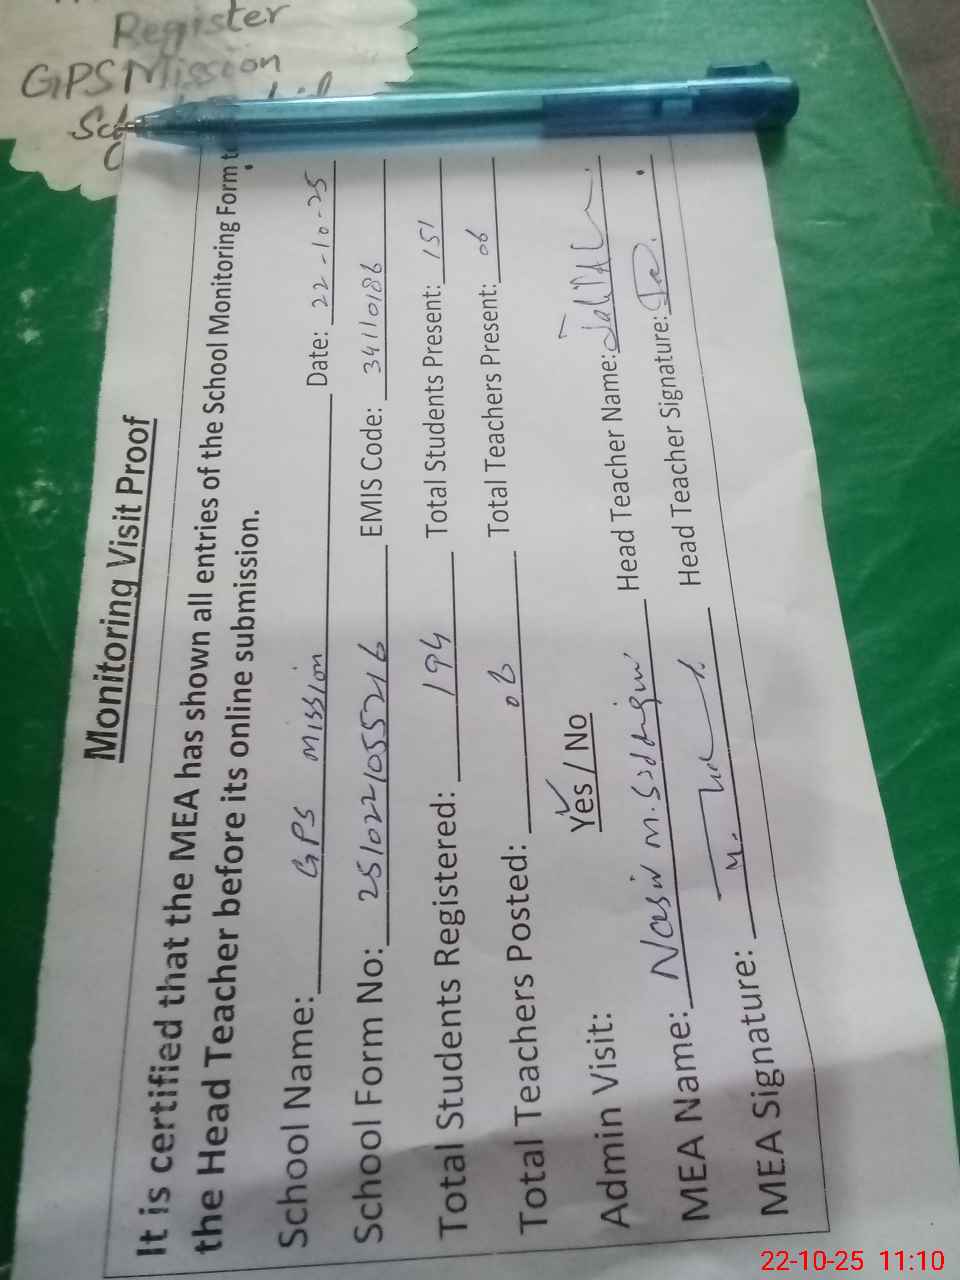 Register
GPS Mission
Monitoring Visit Proof
It is certified that the MEA has shown all entries of the School Monitoring Form to
the Head Teacher before its online submission.
School Name: GPS Mission Date: 22-10-25
School Form No: 2510221055216 EMIS Code: 34110186
Total Students Registered: 194 Total Students Present: 151
Total Teachers Posted: 06 Total Teachers Present: 06
Admin Visit: Yes / No Head Teacher Name:
MEA Name: Nasir M. Head Teacher Signature:
MEA Signature:
22-10-25 11:10